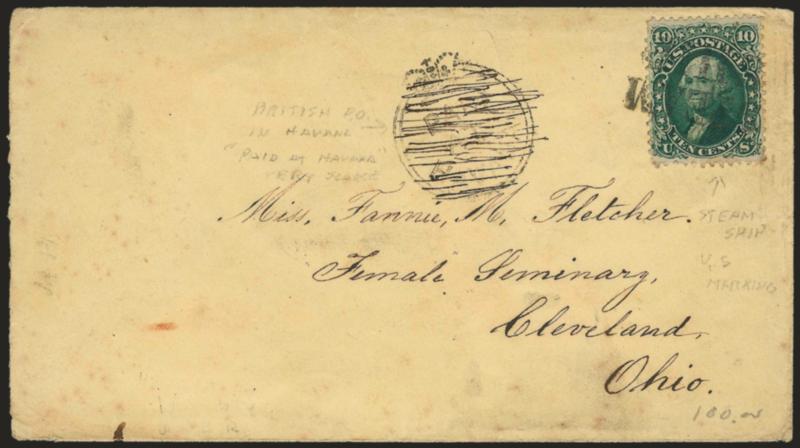 10 10
U.S. POSTAGE
TEN CENTS
U S
BRITISH P.O.
IN HAVANA
"PAID AT HAVANA"
VERY SCARCE
Miss, Fannie, M, Fletcher.
Female Seminary,
Cleveland,
Ohio.
STEAM
SHIP
U.S
MARKING
100.00